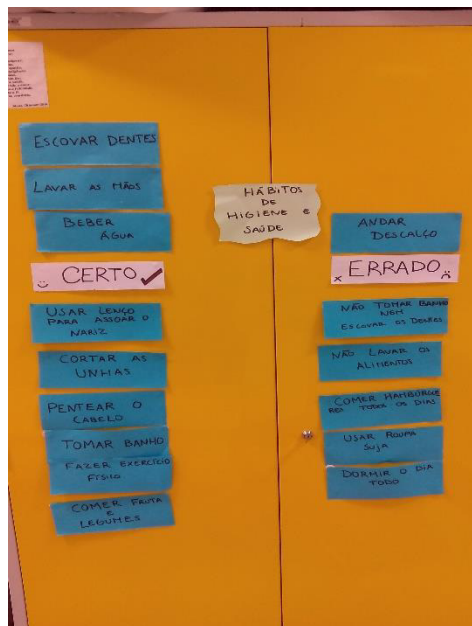 ESCOVAR DENTES
LAVAR AS MÃOS
BEBER
ÁGUA
CERTO
USAR LENÇO
PARA ASSOAR O
NARIZ
CORTAR AS
UNHAS
PENTEAR O
CABELO
TOMAR BANHO
FAZER EXERCÍCIO
FÍSICO
COMER FRUTA
E
LEGUMES
HÁBITOS
DE
HIGIENE E
SAÚDE
ANDAR
DESCALÇO
ERRADO
NÃO TOMAR BANHO
NEM
ESCOVAR OS DENTES
NÃO LAVAR OS
ALIMENTOS
COMER HAMBÚRGUE
RES TODOS OS DIAS
USAR ROUPA
SUJA
DORMIR O DIA
TODO